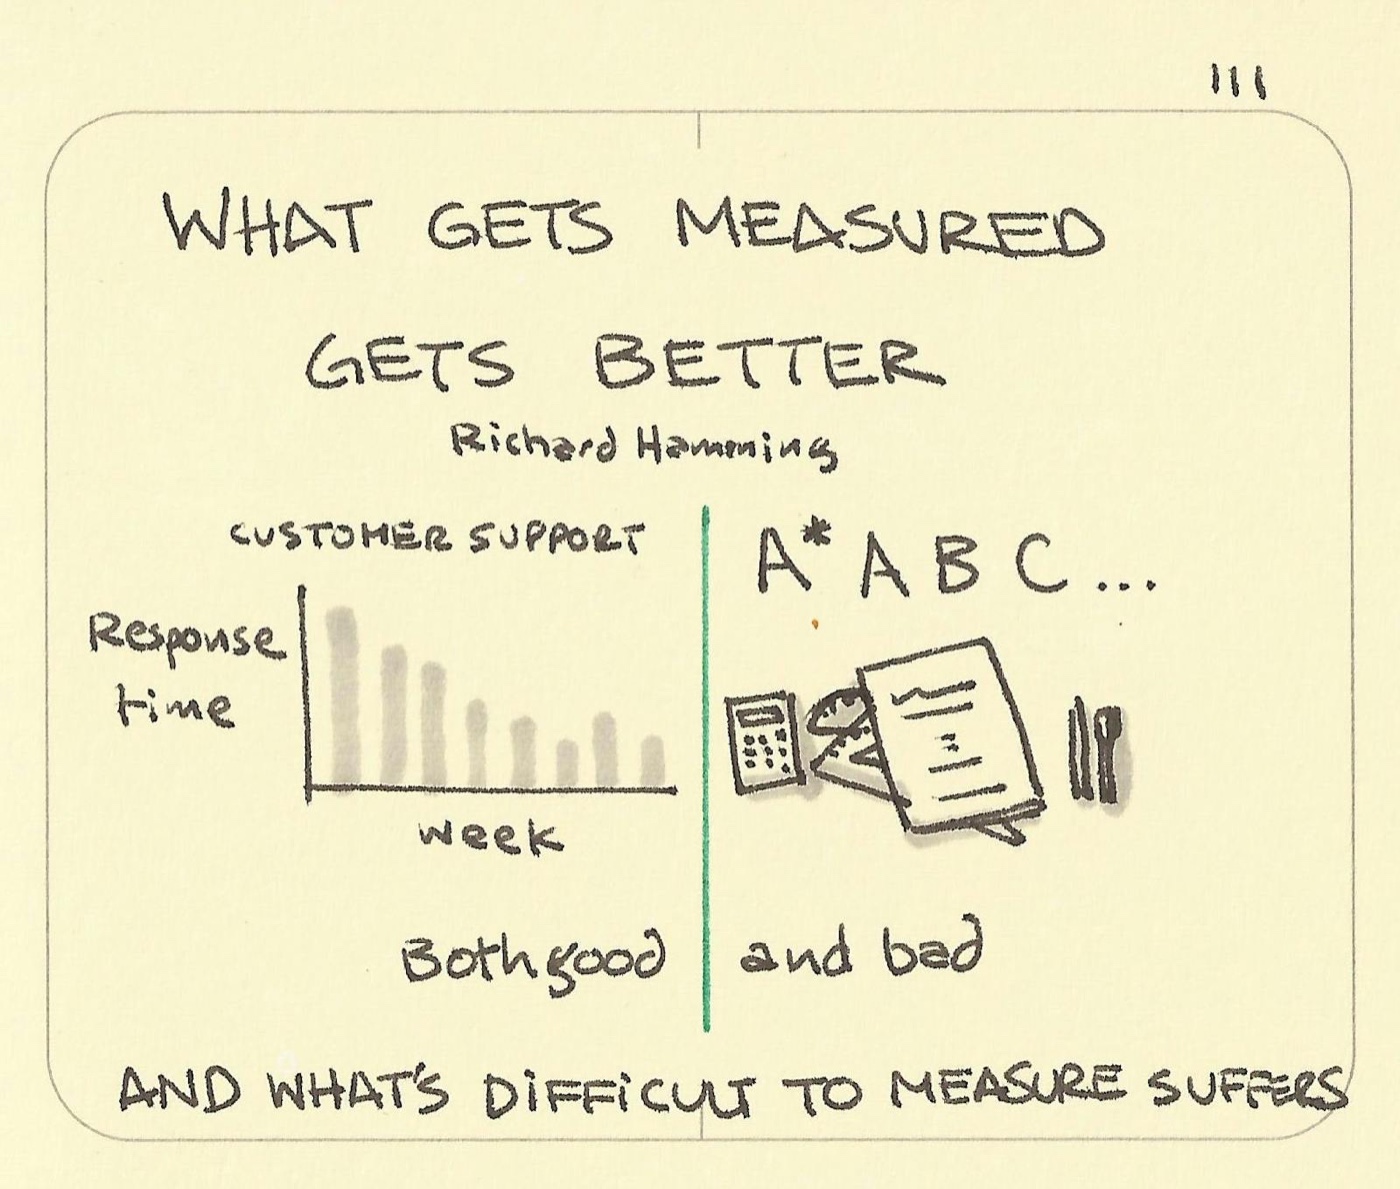 111
WHAT GETS MEASURED
GETS BETTER
Richard Hamming
CUSTOMER SUPPORT
Response
time
week
A* A B C ...
Both good and bad
AND WHAT'S DIFFICULT TO MEASURE SUFFERS